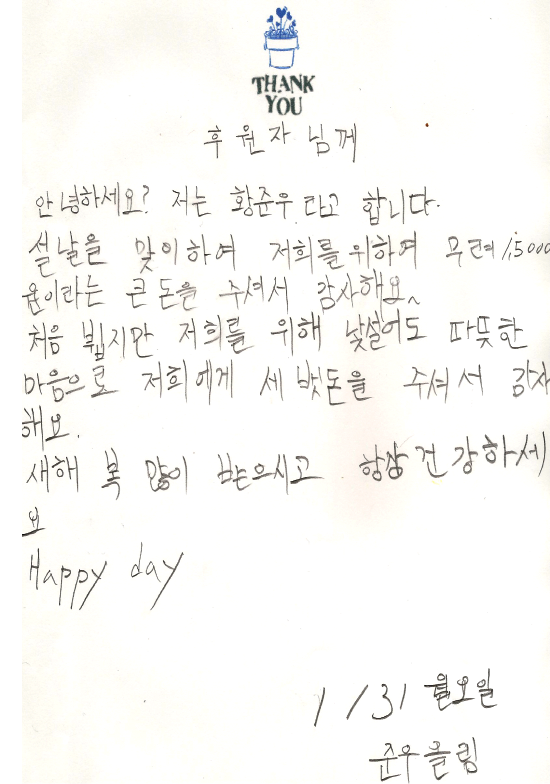 THANK
YOU
후원자님께
안녕하세요? 저는 황준우라고 합니다.
설날을 맞이하여 저희를 위하여 무려 15000
원이라는 큰 돈을 주셔서 감사해요~
처음 뵙지만 저희를 위해 낯설어도 따뜻한
마음으로 저희에게 세벳돈을 주셔서 감사
해요.
새해 복 많이 받으시고 항상 건강하세
요
Happy day
1/31 월요일
준우올림